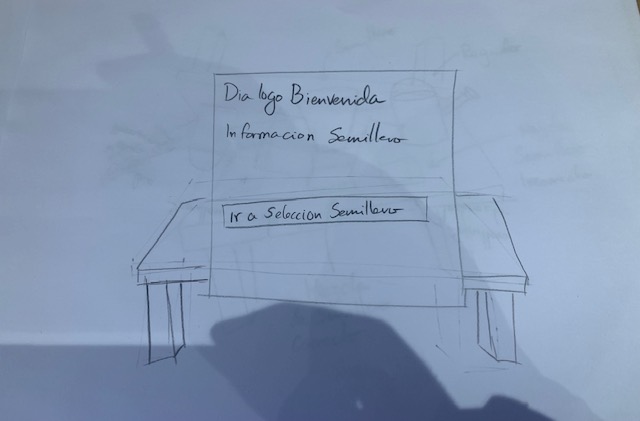 Dialogo Bienvenida
Informacion Semillero
Ir a Seleccion Semillero